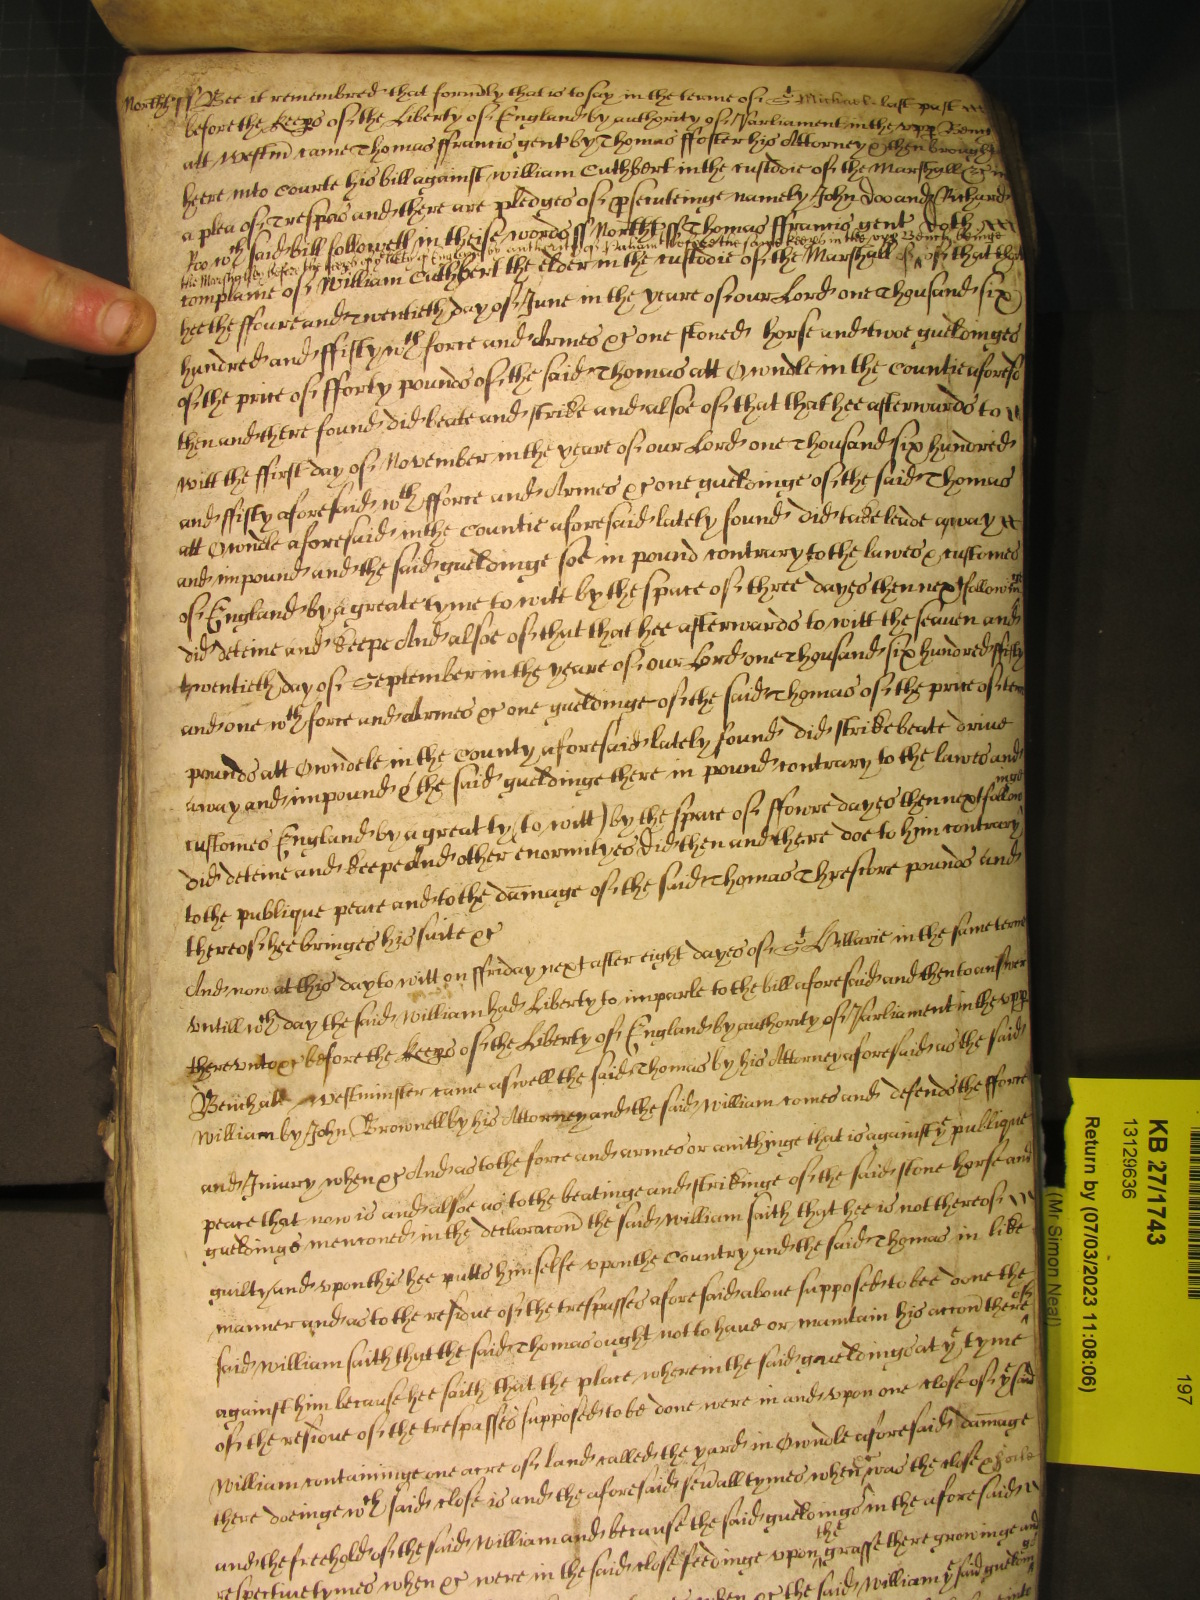 Northt ss Bee it remembred that formerly that is to say in the terme of St Michael last past
before the keeps of the Liberty of England by authority of Parliament in the upp Bench
att Westm came Thomas ffrancis gent by Thomas ffoster his Attorney & then brought
heere into Courte his bill against William Cuthbert in the custodie of the Marshall &c in
a plea of Trespas and there are pledges of prsecuteinge namely John Doo and Richard
Roo wch said bill followeth in theise words ss Northt ss Thomas ffrancis gent doth
the Marshalsey before the keeps of the liberty of England by authority of Parliam before the same keeps in the upp Bench beinge
complaine of William Cuthbert the elder in the custodie of the Marshall of of that that
hee the ffoure and Twentieth day of June in the yeare of our Lord one Thousand six
hundred and ffifty wth force and Armes &c one stoned horse and twoe gueldinges
of the price of fforty pounds of the said Thomas att Owndle in the Countie aforesd
then and there found did beate and strike and alsoe of that that hee afterwards to
witt the ffirst day of November in the yeare of our Lord one Thousand six hundred
and ffifty aforesaid wth fforce and Armes &c one gueldinge of the said Thomas
att Owndle aforesaid in the Countie aforesaid lately found did take leade away &
and impound and the said gueldinge soe in pound contrary to the lawes & customes
of England by a greate tyme to witt by the space of three dayes then next followinge
did deteine and keepe And alsoe of that that hee afterwards to witt the seaven and
twentieth day of September in the yeare of our Lord one Thousand six hundred ffifty
and one wth force and Armes &c one gueldinge of the said Thomas of the price of tenn
pounds att Owndele in the County aforesaid lately found did strike beate drive
away and impound & the said gueldinge there in pound contrary to the lawes and
customes England by a great ty (to witt) by the space of ffowre dayes then next followinge
did deteine and keepe And other enormityes did then and there doe to him contrary
to the publique peace and to the damage of the said Thomas Threscore pounds and
thereof hee bringes his suite &c
And now at this day to witt on ffriday next after eight dayes of St Hillarie in the same terme
untill wch day the said William had Liberty to imparle to the bill aforesaid and then to answer
thereunto &c before the keeps of the Liberty of England by authority of Parliament in the upp
Bench att Westminster came aswell the said Thomas by his Attorney aforesaid as the said
William by John Brownell by his Attorney and the said William comes and defends the fforce
and Injury when &c And as to the force and armes or anithinge that is against ye publique
peace that now is and alsoe as to the beatinge and strikinge of the said stone horse and
gueldings mencioned in the declaracon the said William saith that hee is not thereof
guilty and upon this hee putts himselfe upon the Country and the said Thomas in like
manner and as to the residue of the trespasses aforesaid above supposed to bee done the
said William saith that the said Thomas ought not to have or maintain his accon there of
against him because hee saith that the place wherein the said gueldings at ye tyme
of the residue of the trespasses supposed to be done were in and upon one close of ye said
William containinge one acre of land called the yard in Owndle aforesaid damage
there doeinge wch said close is and the aforesaid sevall tymes when &c was the close &
and the freehold of the said William and because the said gueldings in the aforesaid
respective tymes when &c were in the said close feedinge upon the grasse there growinge and
when &c the said William ye said gueldings
KB 27/1743
13129636
Return by (07/03/2023 11:08:06)
(Mr Simon Neal)
197